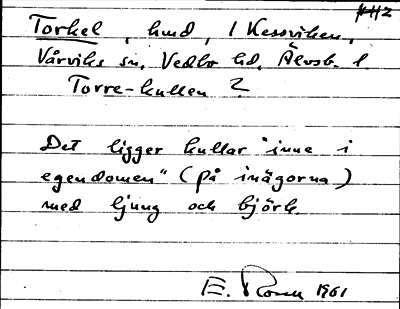 Torkel, hmd, i Kessviken,
Vårviks sn, Vedbo hd, Älvsb. l.
Torre-kullen ?
Det ligger kullar "inne i
egendomen" (på inägorna)
med ljung och björk.
E. Rosen 1961